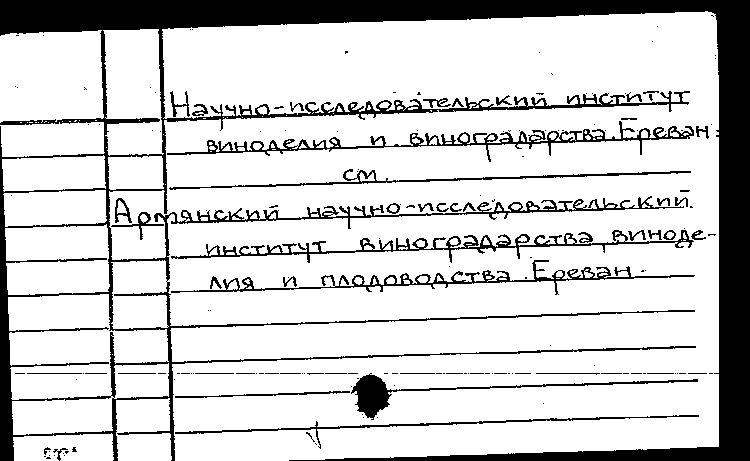 Научно-исследовательский институт
виноделия и виноградарства. Ереван.
см.
Армянский научно-исследовательский
институт виноградарства, виноде-
лия и плодоводства. Ереван.